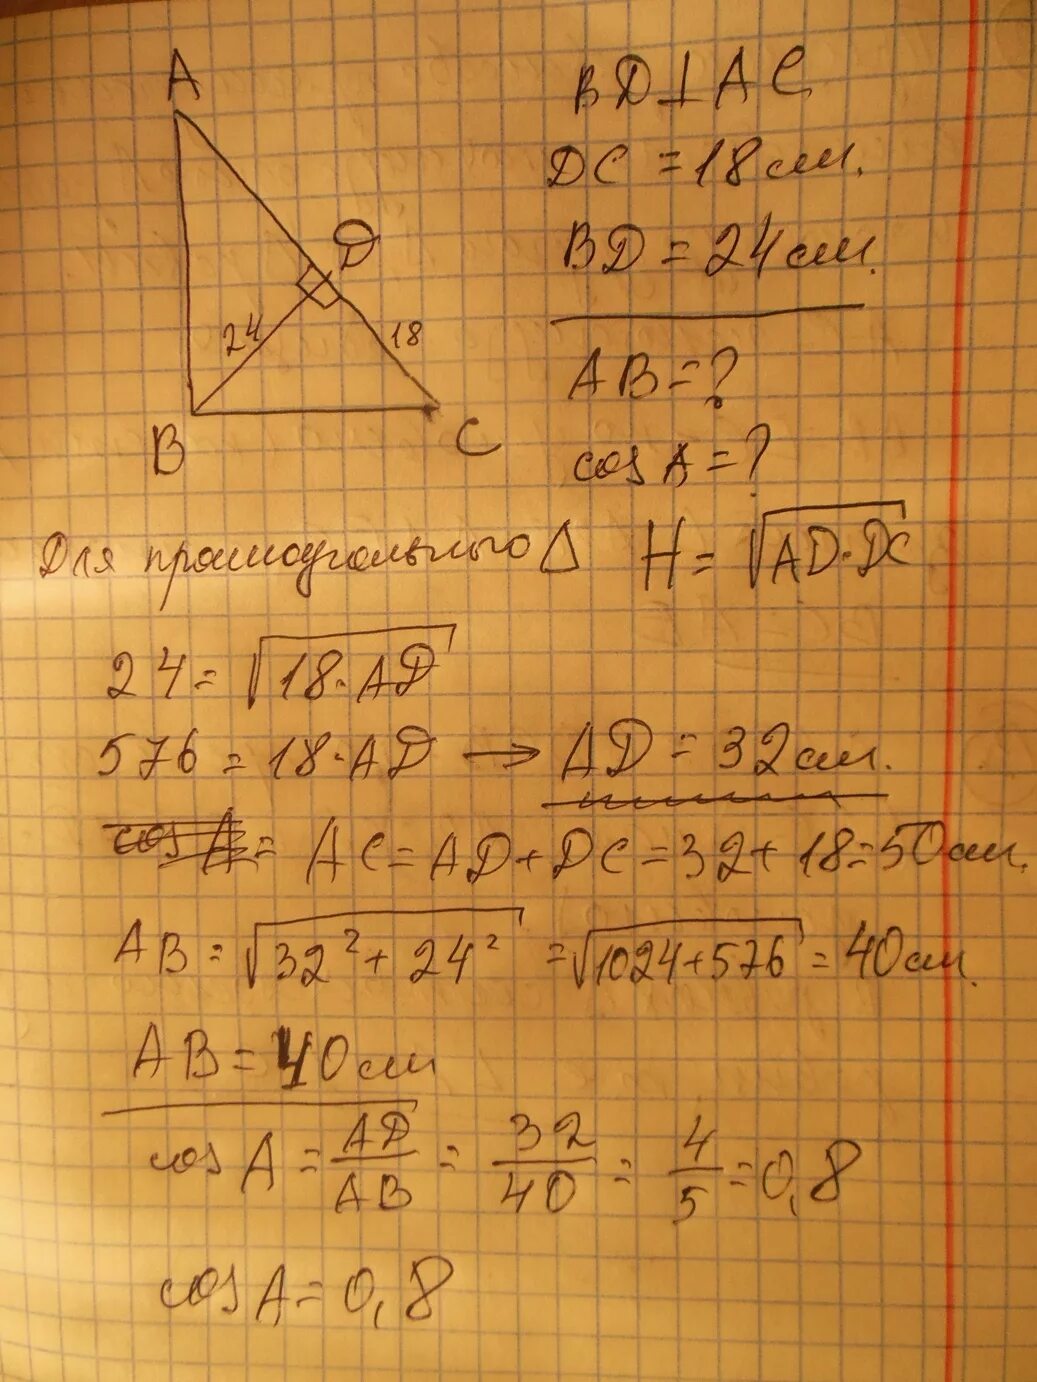 A
D
24
18
B
C
BD⊥AC
DC = 18 см.
BD = 24 см.
AB = ?
cos A = ?
Для прямоугольного Δ H = √AD·DC
24 = √18·AD
576 = 18·AD → AD = 32 см.
cos A = AC = AD + DC = 32 + 18 = 50 см.
AB = √32² + 24² = √1024 + 576 = 40 см.
AB = 40 см
cos A = AD/AB = 32/40 = 4/5 = 0,8
cos A = 0,8